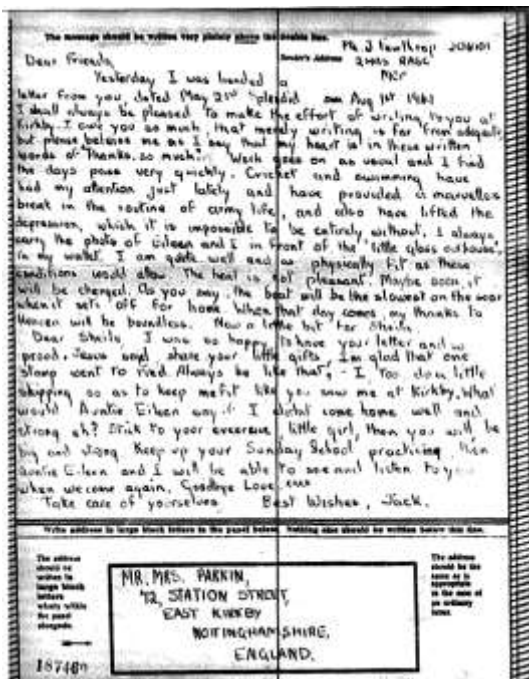 The message should be written very plainly above the double line.
Sender's Address
MEF
Dear Friends,
Yesterday I was handed a
letter from you dated May 21st "splendid Date Aug 1st
I shall always be pleased to make the effort of writing to you at
Kirkby. I owe you so much, that merely writing is far from adequate,
but please believe me as I say that my heart is in these written
words of thanks, so much. Work goes on as usual and I find
the days pass very quickly. Cricket and swimming have
had my attention just lately and have provided a marvellous
break in the routine of army life, and also have lifted the
depression, which it is impossible to be entirely without. I always
carry the photo of Eileen and I in front of the "little glass outhouse",
in my wallet. I am quite well and as physically fit as these
conditions would allow. The heat is not pleasant. Maybe soon it
will be changed. As you say, the boat will be the slowest on the
when it sets off for home. When that day comes, my thanks to
Heaven will be boundless. Now a little bit for Sheila.
Dear Sheila, I was so happy to have your letter and so
proud. Jesus said, share your little gifts, I'm glad that one
stamp went to Always be like that, - I too do a little
skipping so as to keep me fit like you saw me at Kirkby. What
would Auntie Eileen say if I didnt come home well and
strong eh? Stick to your exercise, little girl, then you will be
big and strong. Keep up your Sunday School practicing, then
Auntie Eileen and I will be able to see and listen to you
when we come again. Goodbye Love,
Take care of yourselves. Best Wishes, Jack.
Write address in large block letters in the panel below. Nothing else should be written below this line.
The address
should be
written in
large block
letters
wholly within
the panel
alongside.
MR. MRS. PARKIN,
72, STATION STREET,
EAST KIRKBY
NOTTINGHAMSHIRE,
ENGLAND.
The address
should be the
same as is
appropriate
in the case of
an ordinary
letter.